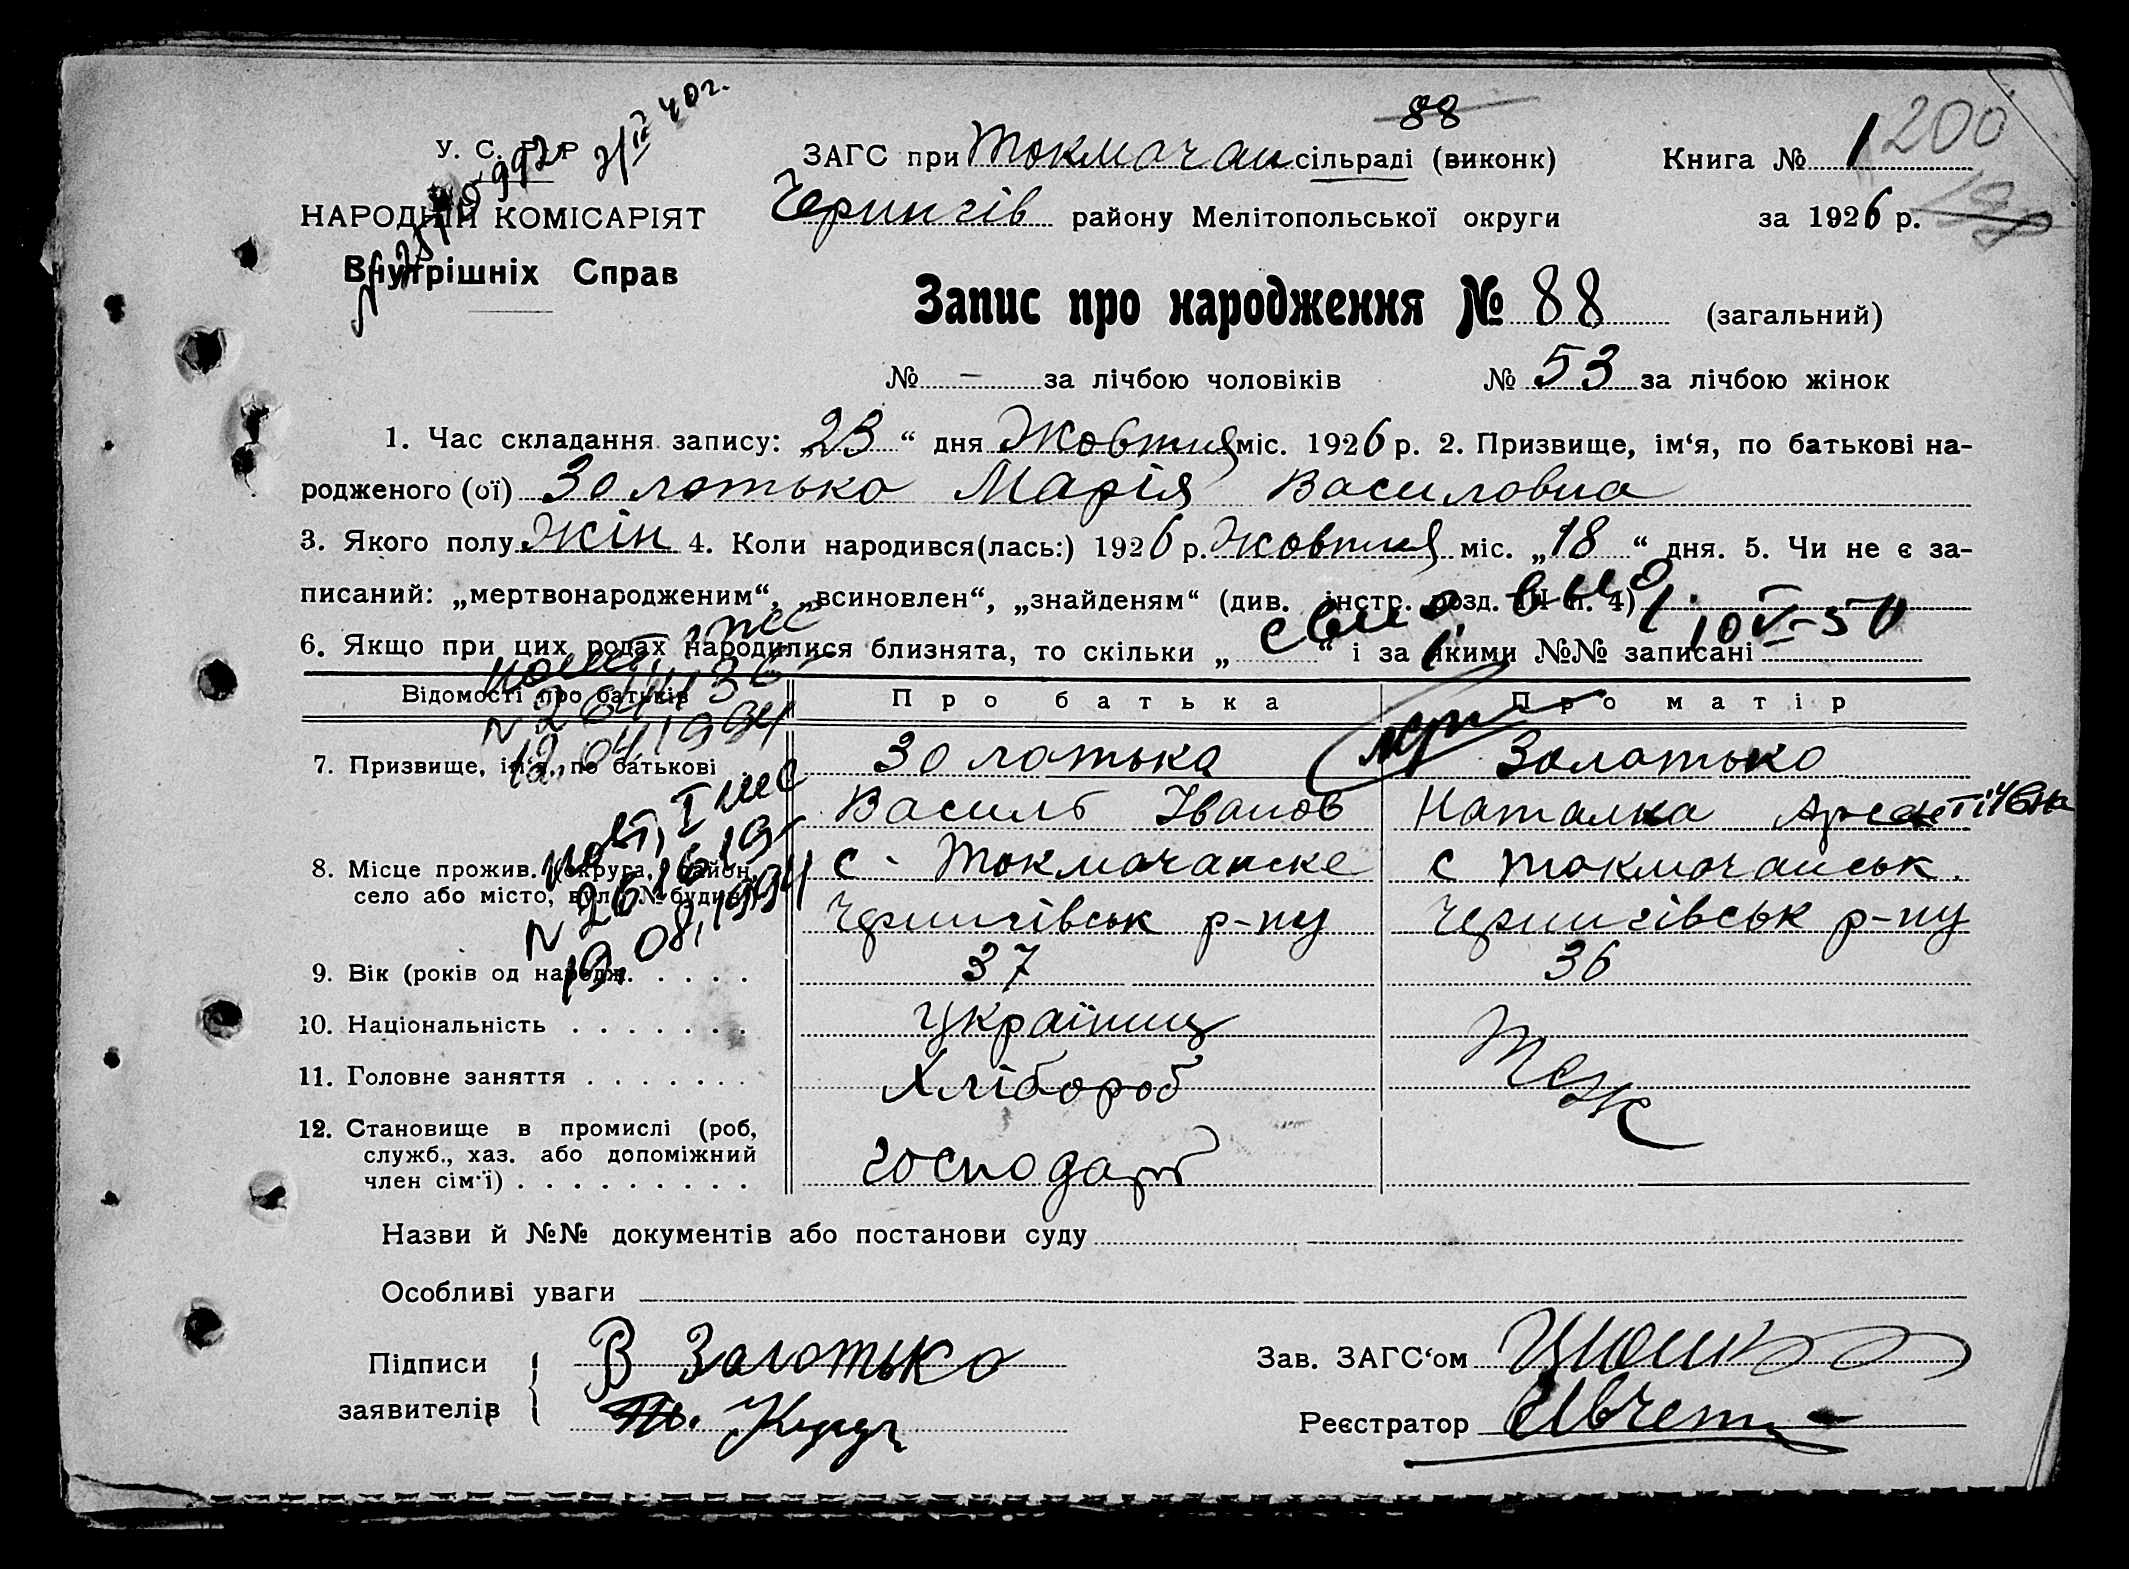 88
У. С. Р. Р.
ЗАГС при Токмачан сільраді (виконк)
Книга № 1 200
НАРОДНІЙ КОМІСАРІЯТ
Чернигів району Мелітопольської округи
за 1926 р.
Внутрішніх Справ
Запис про народження № 88 (загальний)
№ - за лічбою чоловіків № 53 за лічбою жінок
1. Час складання запису: „23“ дня Жовтня міс. 1926 р. 2. Призвище, ім‘я, по батькові на-
родженого (ої) Золотько Марія Василовна
3. Якого полу жін 4. Коли народився(лась:) 1926 р. Жовтня міс. „18“ дня. 5. Чи не є за-
писаний: „мертвонародженим“, „всиновлен“, „знайденям“ (див. інстр. розд. III п. 4)
6. Якщо при цих родах народилися близнята, то скільки „ “ і за якими №№ записані
Відомості про батьків Про батька Про матір
7. Призвище, ім‘я, по батькові Золотька Золотько
Василь Іванов Наталка
8. Місце прожив. (округа, район, с. Токмачанске с Токмачанськ.
село або місто, вул. № будин.) Чернигівськ р-ну Чернигівськ р-ну
9. Вік (років од народж. 37 36
10. Національність Українець Теж
11. Головне заняття Хлібороб
12. Становище в промислі (роб,
служб., хаз. або допоміжний
член сім‘ї) господарь
повт. I мес
N 261619
19.08.1994
12.04.1994
Назви й №№ документів або постанови суду
Особливі уваги
Підписи заявителів В Золотько
Зав. ЗАГС‘ом
Реєстратор